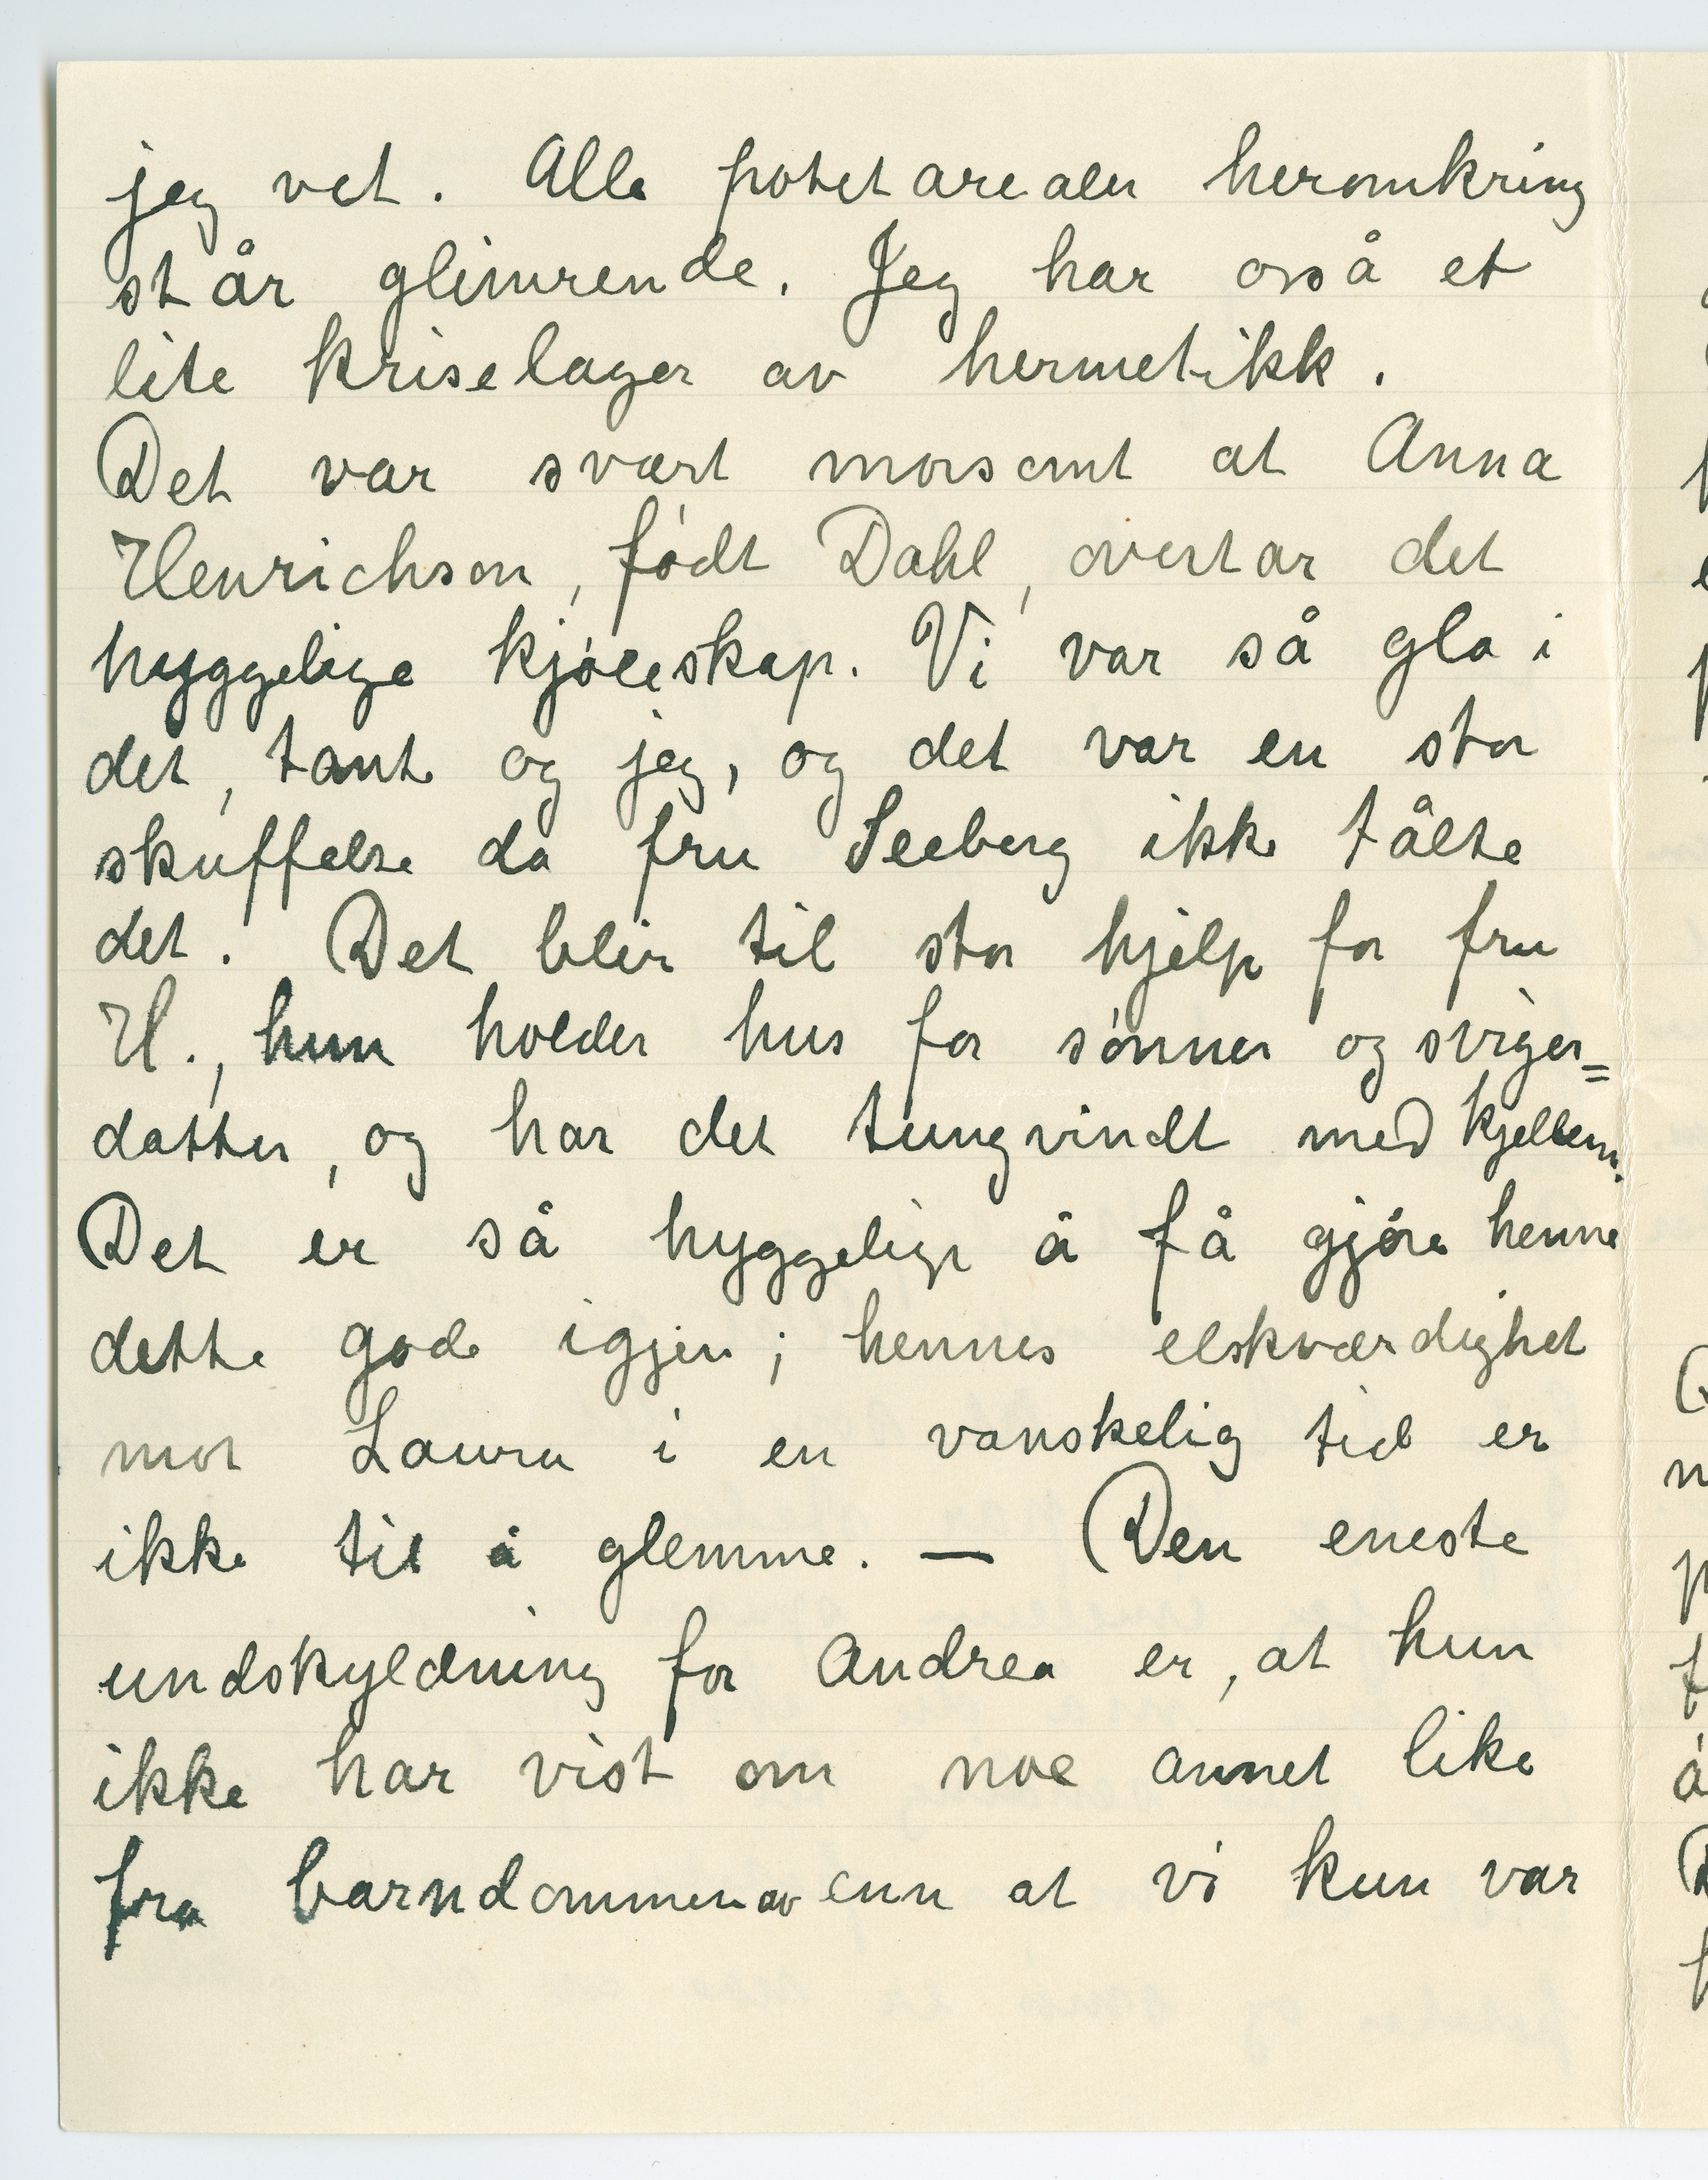 jeg vet. Alle potetarealer heromkring
står glimrende. Jeg har også et
lite kriselager av hermetikk.
Det var svært morsomt at Anna
Henrichsen, født Dahl, overtar det
hyggelige kjøleskap. Vi var så gla i
det, tante og jeg, og det var en stor
skuffelse da fru Seeberg ikke tålte
det. Det blir til stor hjelp for fru
H., hun holder hus for sønner og sviger=
datter, og har det tungvindt med kjelleren.
Det er så hyggelig å få gjøre henne
dette gode igjen; hennes elskværdighet
mot Laura i en vanskelig tid er
ikke til å glemme. — Den eneste
undskyldning for Andrea er, at hun
ikke har vist om noe annet like
fra barndommen av enn at vi kun var